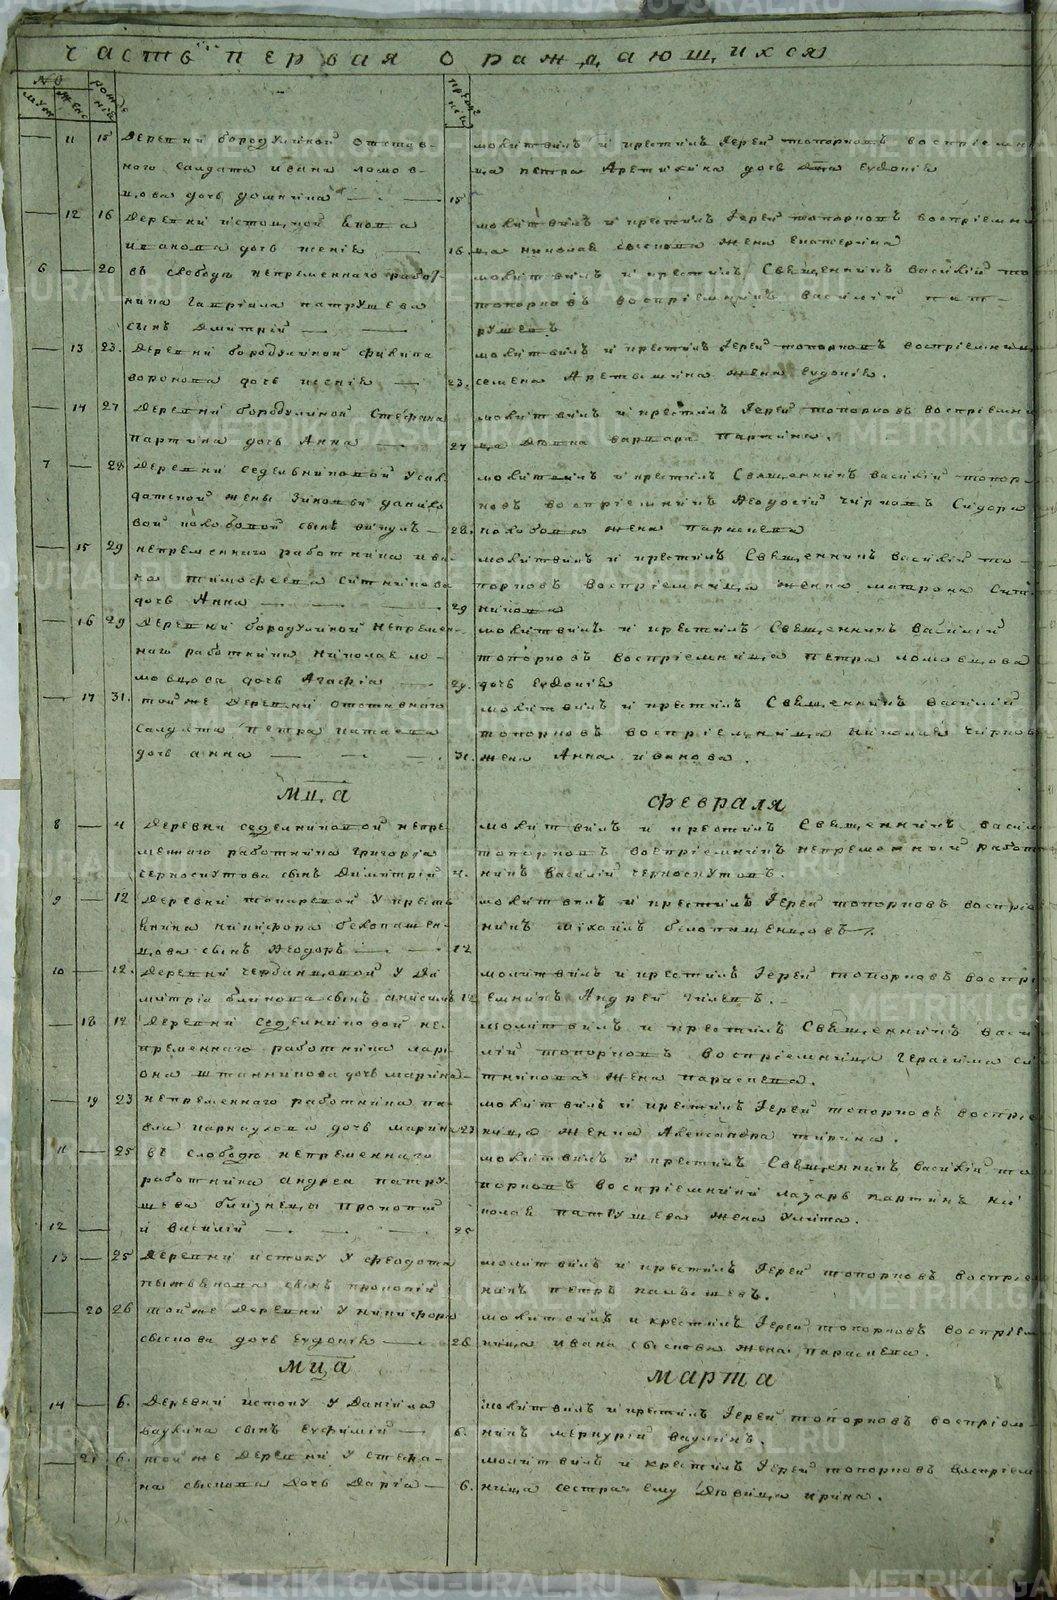 часть первая о раждающихся
№
муж женс рожденій крещеніи
11 15 Деревни бородулиной отстав-
наго салдата ивана ломов-
цова дочь домникіа 15
молитвилъ и крестилъ Іерей топорковъ воспріемни
ца петра Аретикина дочь евдокіа
12 16 Деревни истоцкой
иванова дочь ксеніа 16.
молитвилъ и крестилъ Іерей топорковъ воспріемни
ца николая сыскова жена екатерина
6 20 въ слободе непременнаго работ-
ника гавріила патрушева
сынъ Димитрій
молитвилъ и крестилъ Священникъ василій то
топорковъ воспріемникъ василій пат-
рушевъ
13 23. Деревни бородулиной филипа
воронова дочь ксеніа 23.
молитвилъ и крестилъ Іерей топорковъ воспріемница
семена жена евдокіа.
14 27 Деревни бородулиной Стефана
партина дочь Анна 27
молитвилъ и крестилъ Іерей топорковъ воспріемни
ца девка варвара партина.
7 28 Деревни седельниковой у сал
датской жены Зиновьи данило
вой колобовой сынъ викулъ 28.
молитвилъ и крестилъ Священникъ василій топор-
ковъ воспріемникъ Феодосій чирковъ Сидора
колобова жена параскева
15 29 непременнаго работника ива
на тимофеева ситникова
дочь Анна 29
молитвилъ и крестилъ Священникъ василій то-
порковъ воспріемница женка матрона Сит
никова
16 29 Деревни бородулиной непремен-
наго работника николая ло-
мовцова дочь Агафіа 29.
молитвилъ и крестилъ Священникъ василій
топорковъ воспріемница петра ломовцова
дочь евдокіа
17 31. той же деревни отставнаго
салдата петра катаева
дочь анна 31.
молитвилъ и крестилъ Священникъ василій
топорковъ воспріемница николая чирков
жена Анна иванова.
мца февраля
8 4 Деревни седелниковой непре
меннаго работника григоріа
черноскутова сынъ Димитрій 4.
молитвилъ и крестилъ Священникъ васил
топорковъ воспріемникъ непременный работ
никъ василій черноскутовъ.
9 12 Деревни токаревой у кресть
янина никифора белопашен-
цова сынъ Феодоръ 12
молитвилъ и крестилъ Іерей топорковъ воспріем
никъ михаилъ белопашенцовъ
10 12. Деревни чердандовой у Ди
митріа блинова сынъ анисимъ 12
молитвилъ и крестилъ Іерей топорковъ воспрі
емникъ Андрей
18 12 Деревни седелниковой не-
пременнаго работника лари-
она штанникова дочь марина
молитвилъ и крестилъ Священникъ васи
лій топорковъ воспріемница герасима си
тникова жена параскева.
19 23 непременнаго работника па-
вла карнаухова дочь марина 23
молитвилъ и крестилъ Іерей топорковъ воспріем
ница женка Александра
11 25 въ слободе непременнаго
работника андреа патру
шева близнецы прокопій
12 и василій 25
молитвилъ и крестилъ Священникъ василій то
порковъ воспріемники лазарь партинъ ни
колая патрушева жена улита.
13 25 Деревни истоку у феодота
сынъ прокопій
молитвилъ и крестилъ Іерей топорковъ воспріем
никъ петръ камышевъ.
20 26 той же деревни у никифора
сыскова дочь евдокіа 26
молитвилъ и крестилъ Іерей топорковъ воспріем
ница ивана сыскова жена параскева.
мца марта
14 6. Деревни истоку у данійла
ваулина сынъ евфимій 6.
молитвилъ и крестилъ Іерей топорковъ воспріем-
никъ меркурій ваулинъ.
21 6. той же деревни у стефа-
на сыскова дочь даріа 6.
молитвилъ и крестилъ Іерей топорковъ воспріем
ница сестра ему девица ирина.
METRIKI.GASO-URAL.RU